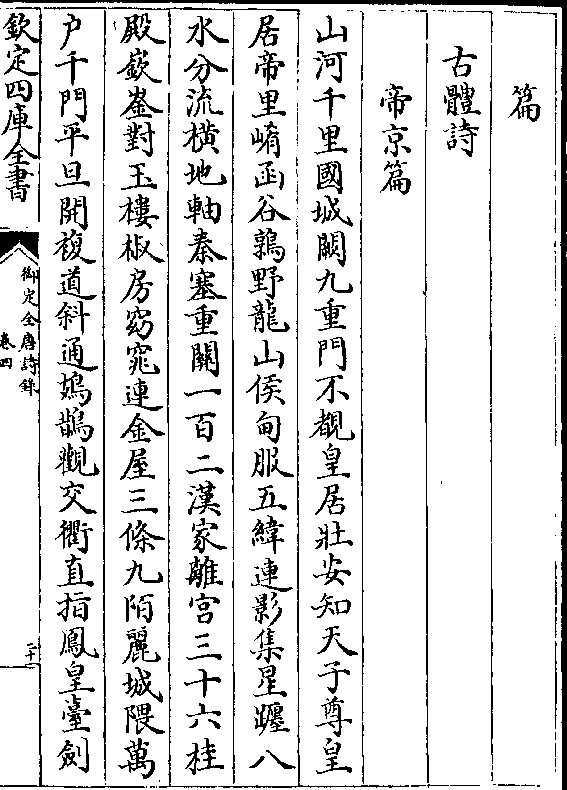 篇
古體詩
帝京篇
山河千里國城闕九重門不覩皇居壯安知天子尊皇
居帝里崤函谷鶉野龍山侯甸服五緯連影集星躔八
水分流橫地軸秦塞重關一百二漢家離宫三十六桂
殿嶔崟對玉樓椒房窈窕連金屋三條九陌麗城隈萬
户千門平旦開複道斜通鳷鵲觀交衢直指鳳皇臺劍
欽定四庫全書
御定全唐詩錄
卷四
二十